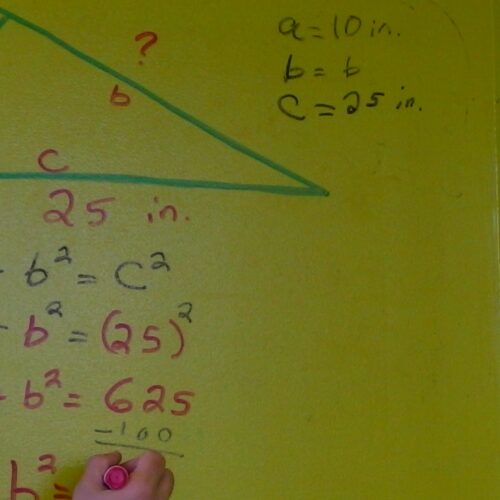 a = 10 in.
b = b
c = 25 in.
?
b
c
25 in.
b² = c²
b² = (25)²
b² = 625
-100
b² =